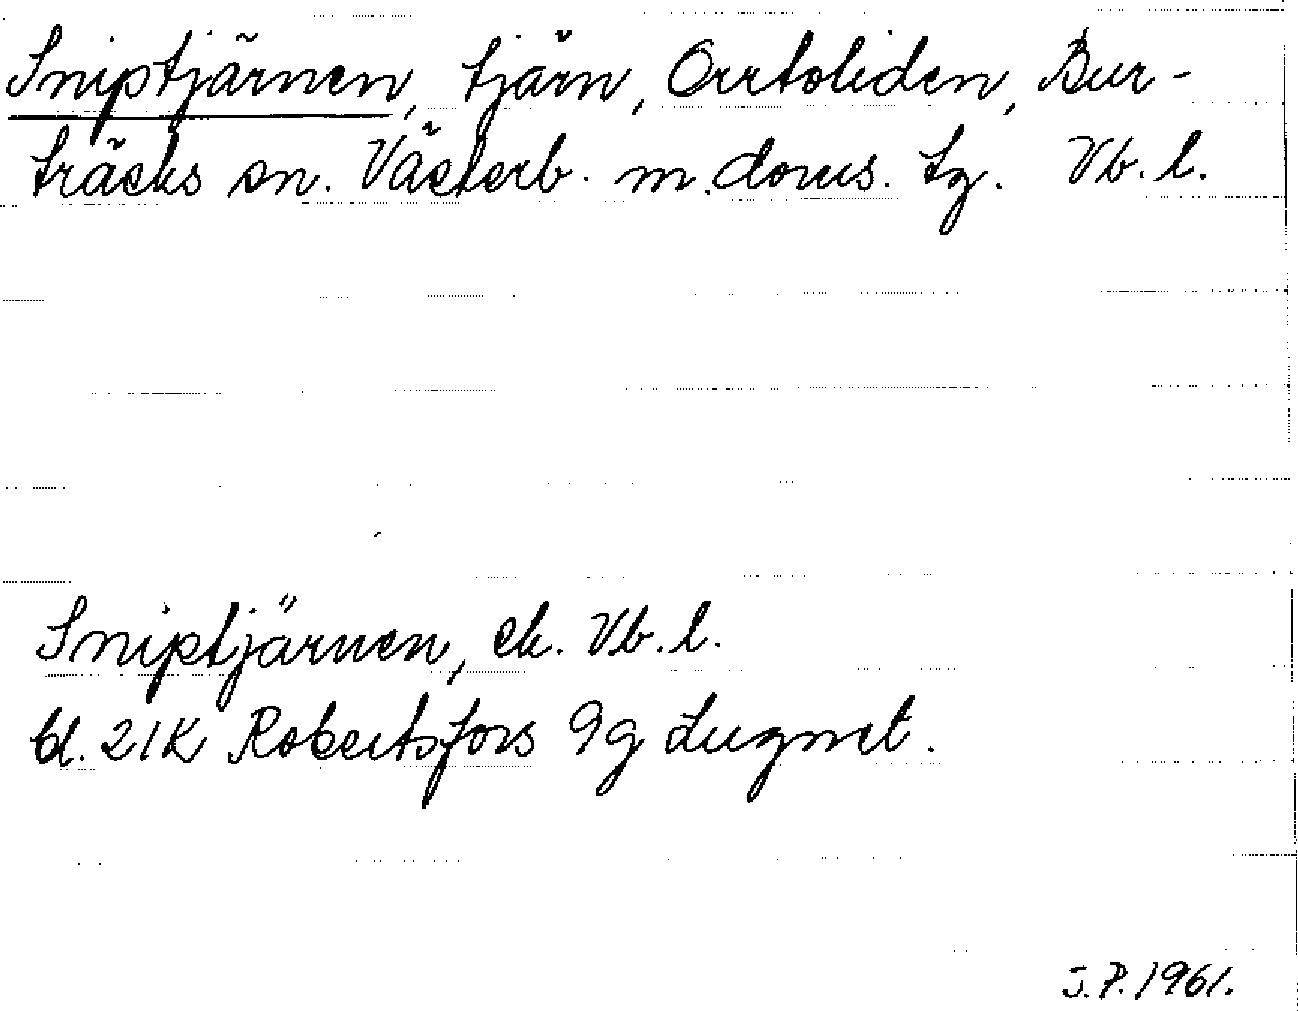 Sniptjärnen, tjärn, Orrtoliden, Bur-
träsks sn. Västerb. m. doms. tg. Vb. l.
Sniptjärnen, ek. Vb. l.
bl. 21K Robertsfors 9g Lugnet.
J.P. 1961.